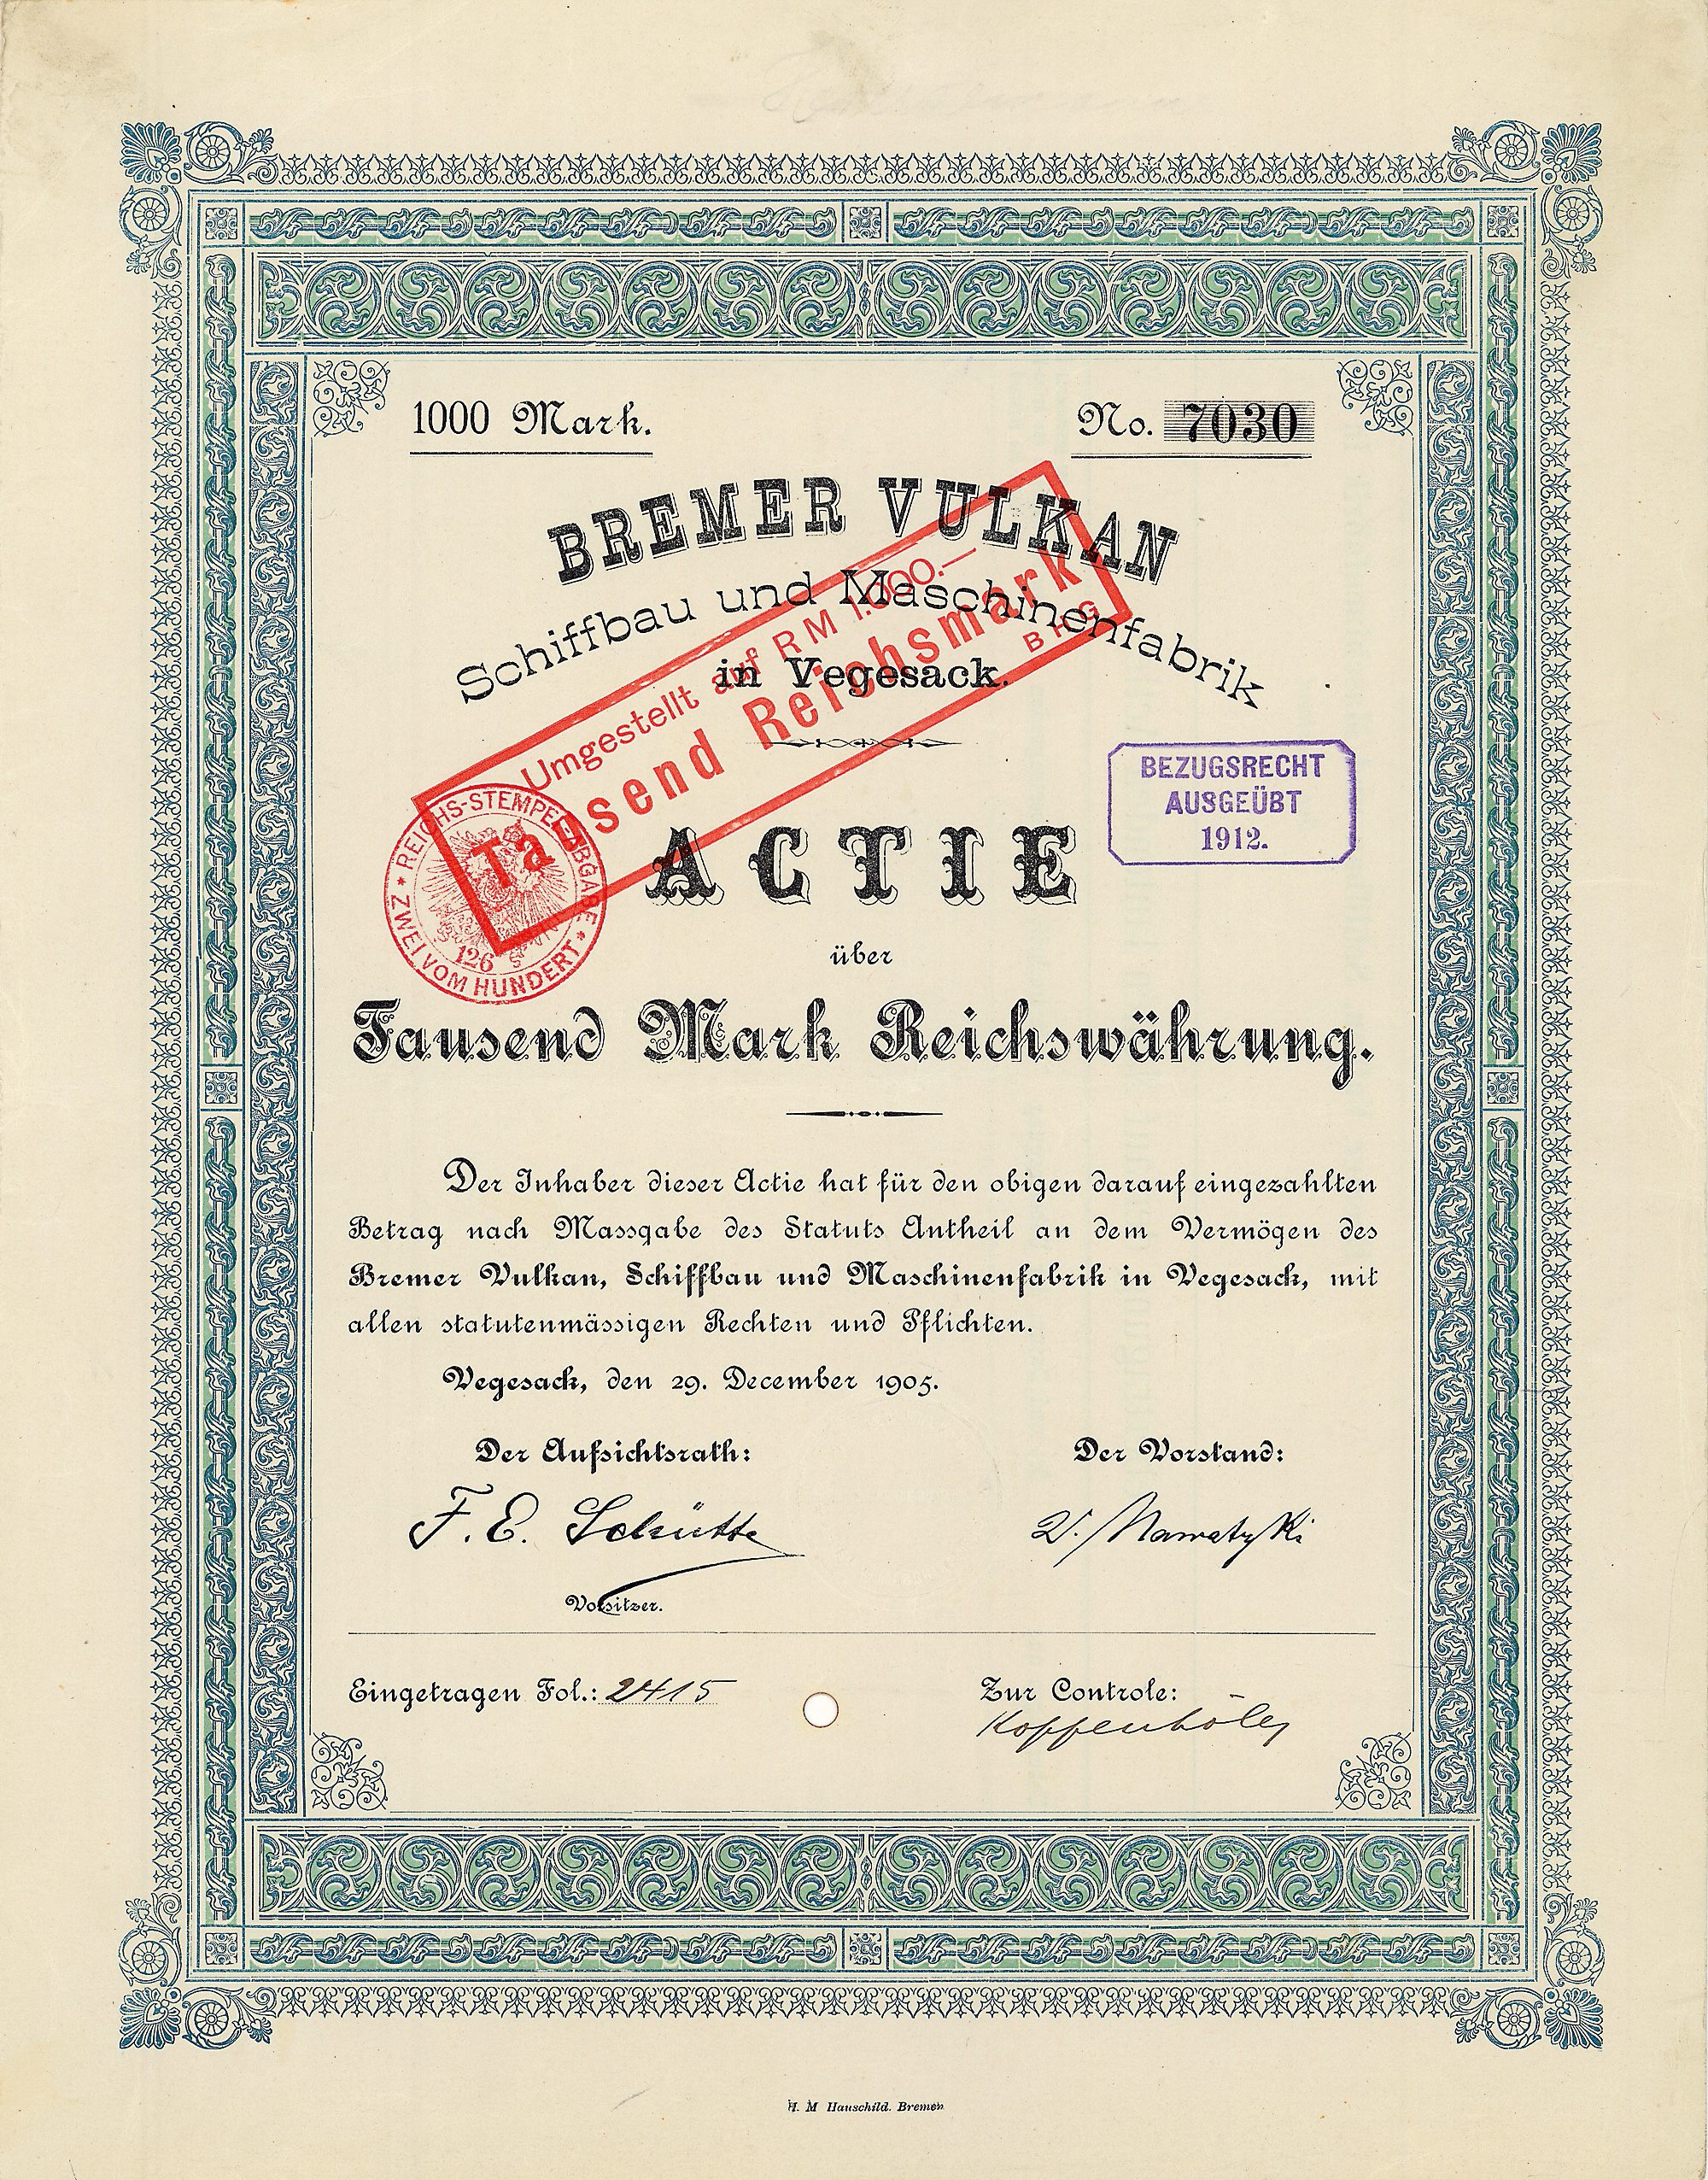 1000 Mark.
No. 7030
BREMER VULKAN
Schiffbau und Maschinenfabrik
in Vegesack.
Umgestellt auf RM 1.000.—
Tausend Reichsmark
REICHS-STEMPEL-ABGABE
ZWEI VOM HUNDERT
126
BEZUGSRECHT
AUSGEÜBT
1912.
ACTIE
über
Tausend Mark Reichswährung.
Der Inhaber dieser Actie hat für den obigen darauf eingezahlten
Betrag nach Massgabe des Statuts Antheil an dem Vermögen des
Bremer Vulkan, Schiffbau und Maschinenfabrik in Vegesack, mit
allen statutenmässigen Rechten und Pflichten.
Vegesack, den 29. December 1905.
Der Aufsichtsrath:
Der Vorstand:
F. E. Schütte
V. Nawatzki
Vorsitzer.
Eingetragen Fol.: 2415
Zur Controle:
H. M Hauschild. Bremen